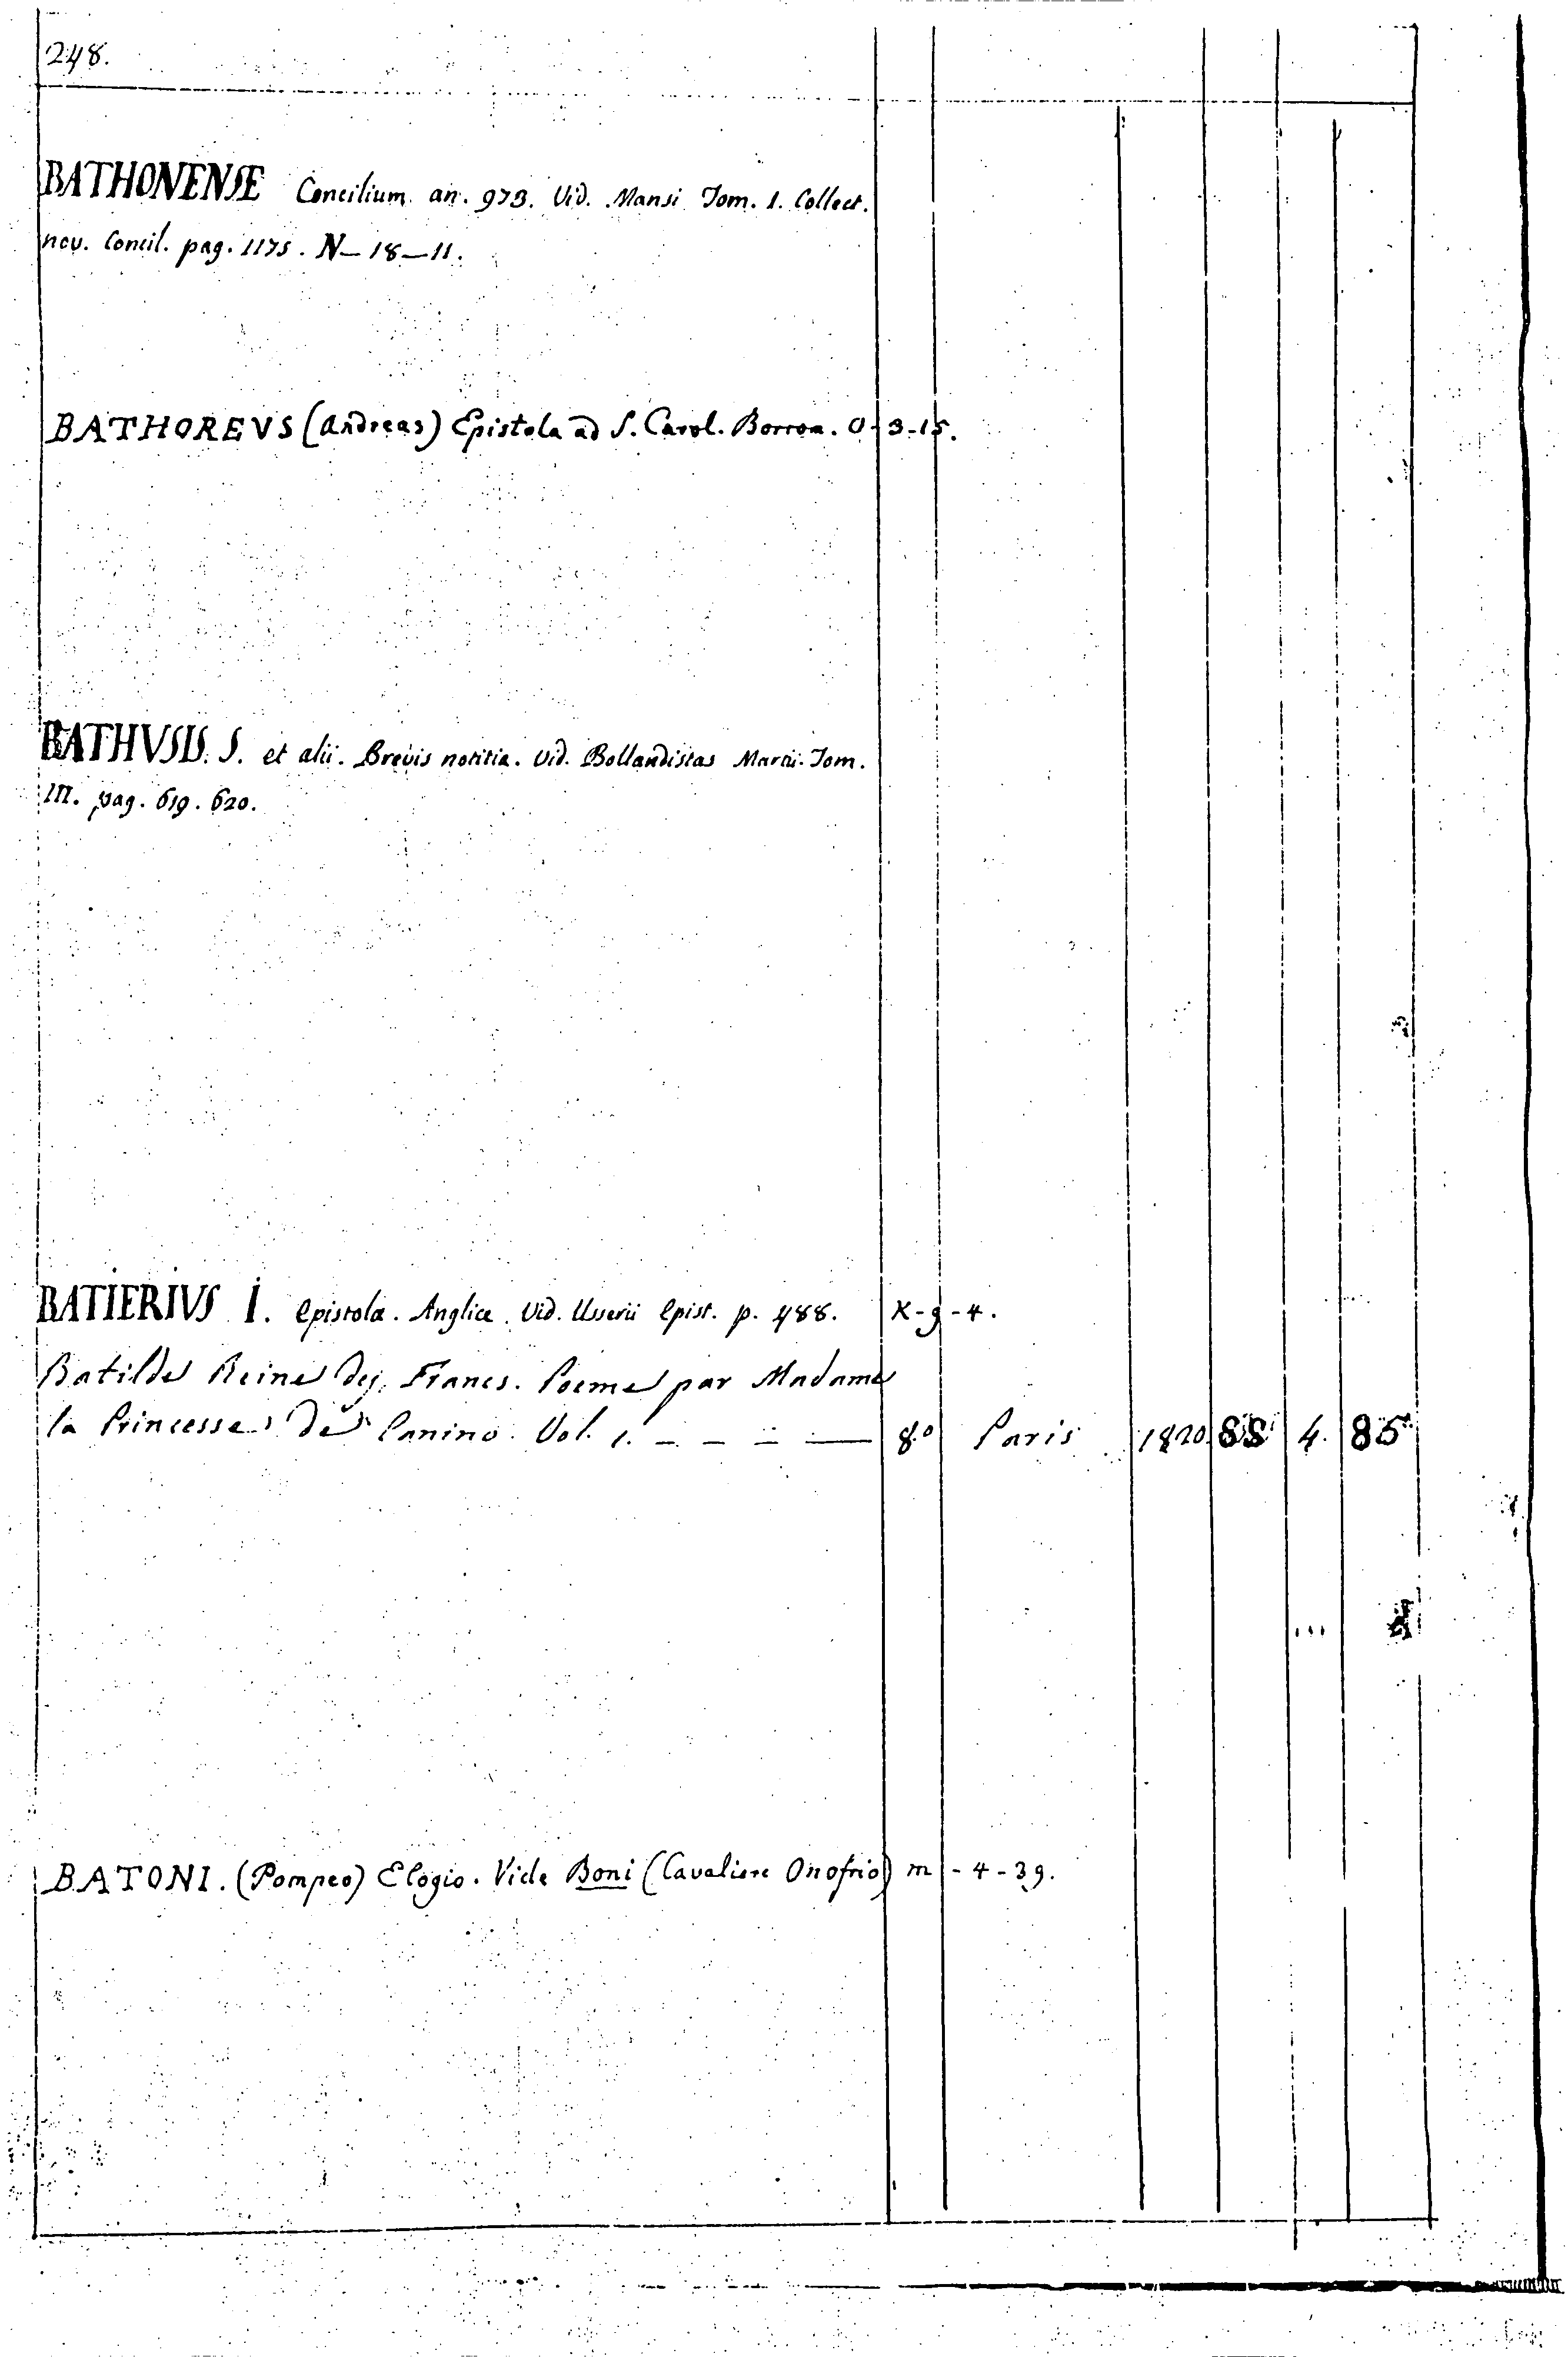 248.
BATHONENSE Concilium an. 973. Vid. Mansi Tom. 1. Collect.
nov. Concil. pag. 1175. N-18-11.
BATHOREVS (Andreas) Epistola ad S. Carol. Borrom. O-3-15.
BATHVSIS. S. et alii. Brevis notitia. Vid. Bollandistas Martii. Tom.
III. pag. 619. 620.
BATIERIVS I. Epistola. Anglice. Vid. Usserii Epist. p. 488. X-9-4.
Batilde Reine des Francs. Poeme par Madame
la Princesse de Canino. Vol. 1. - - - — 8.o Paris 1820. SS 4. 85
BATONI. (Pompeo) Elogio. Vide Boni (Cavaliere Onofrio) m-4-39.